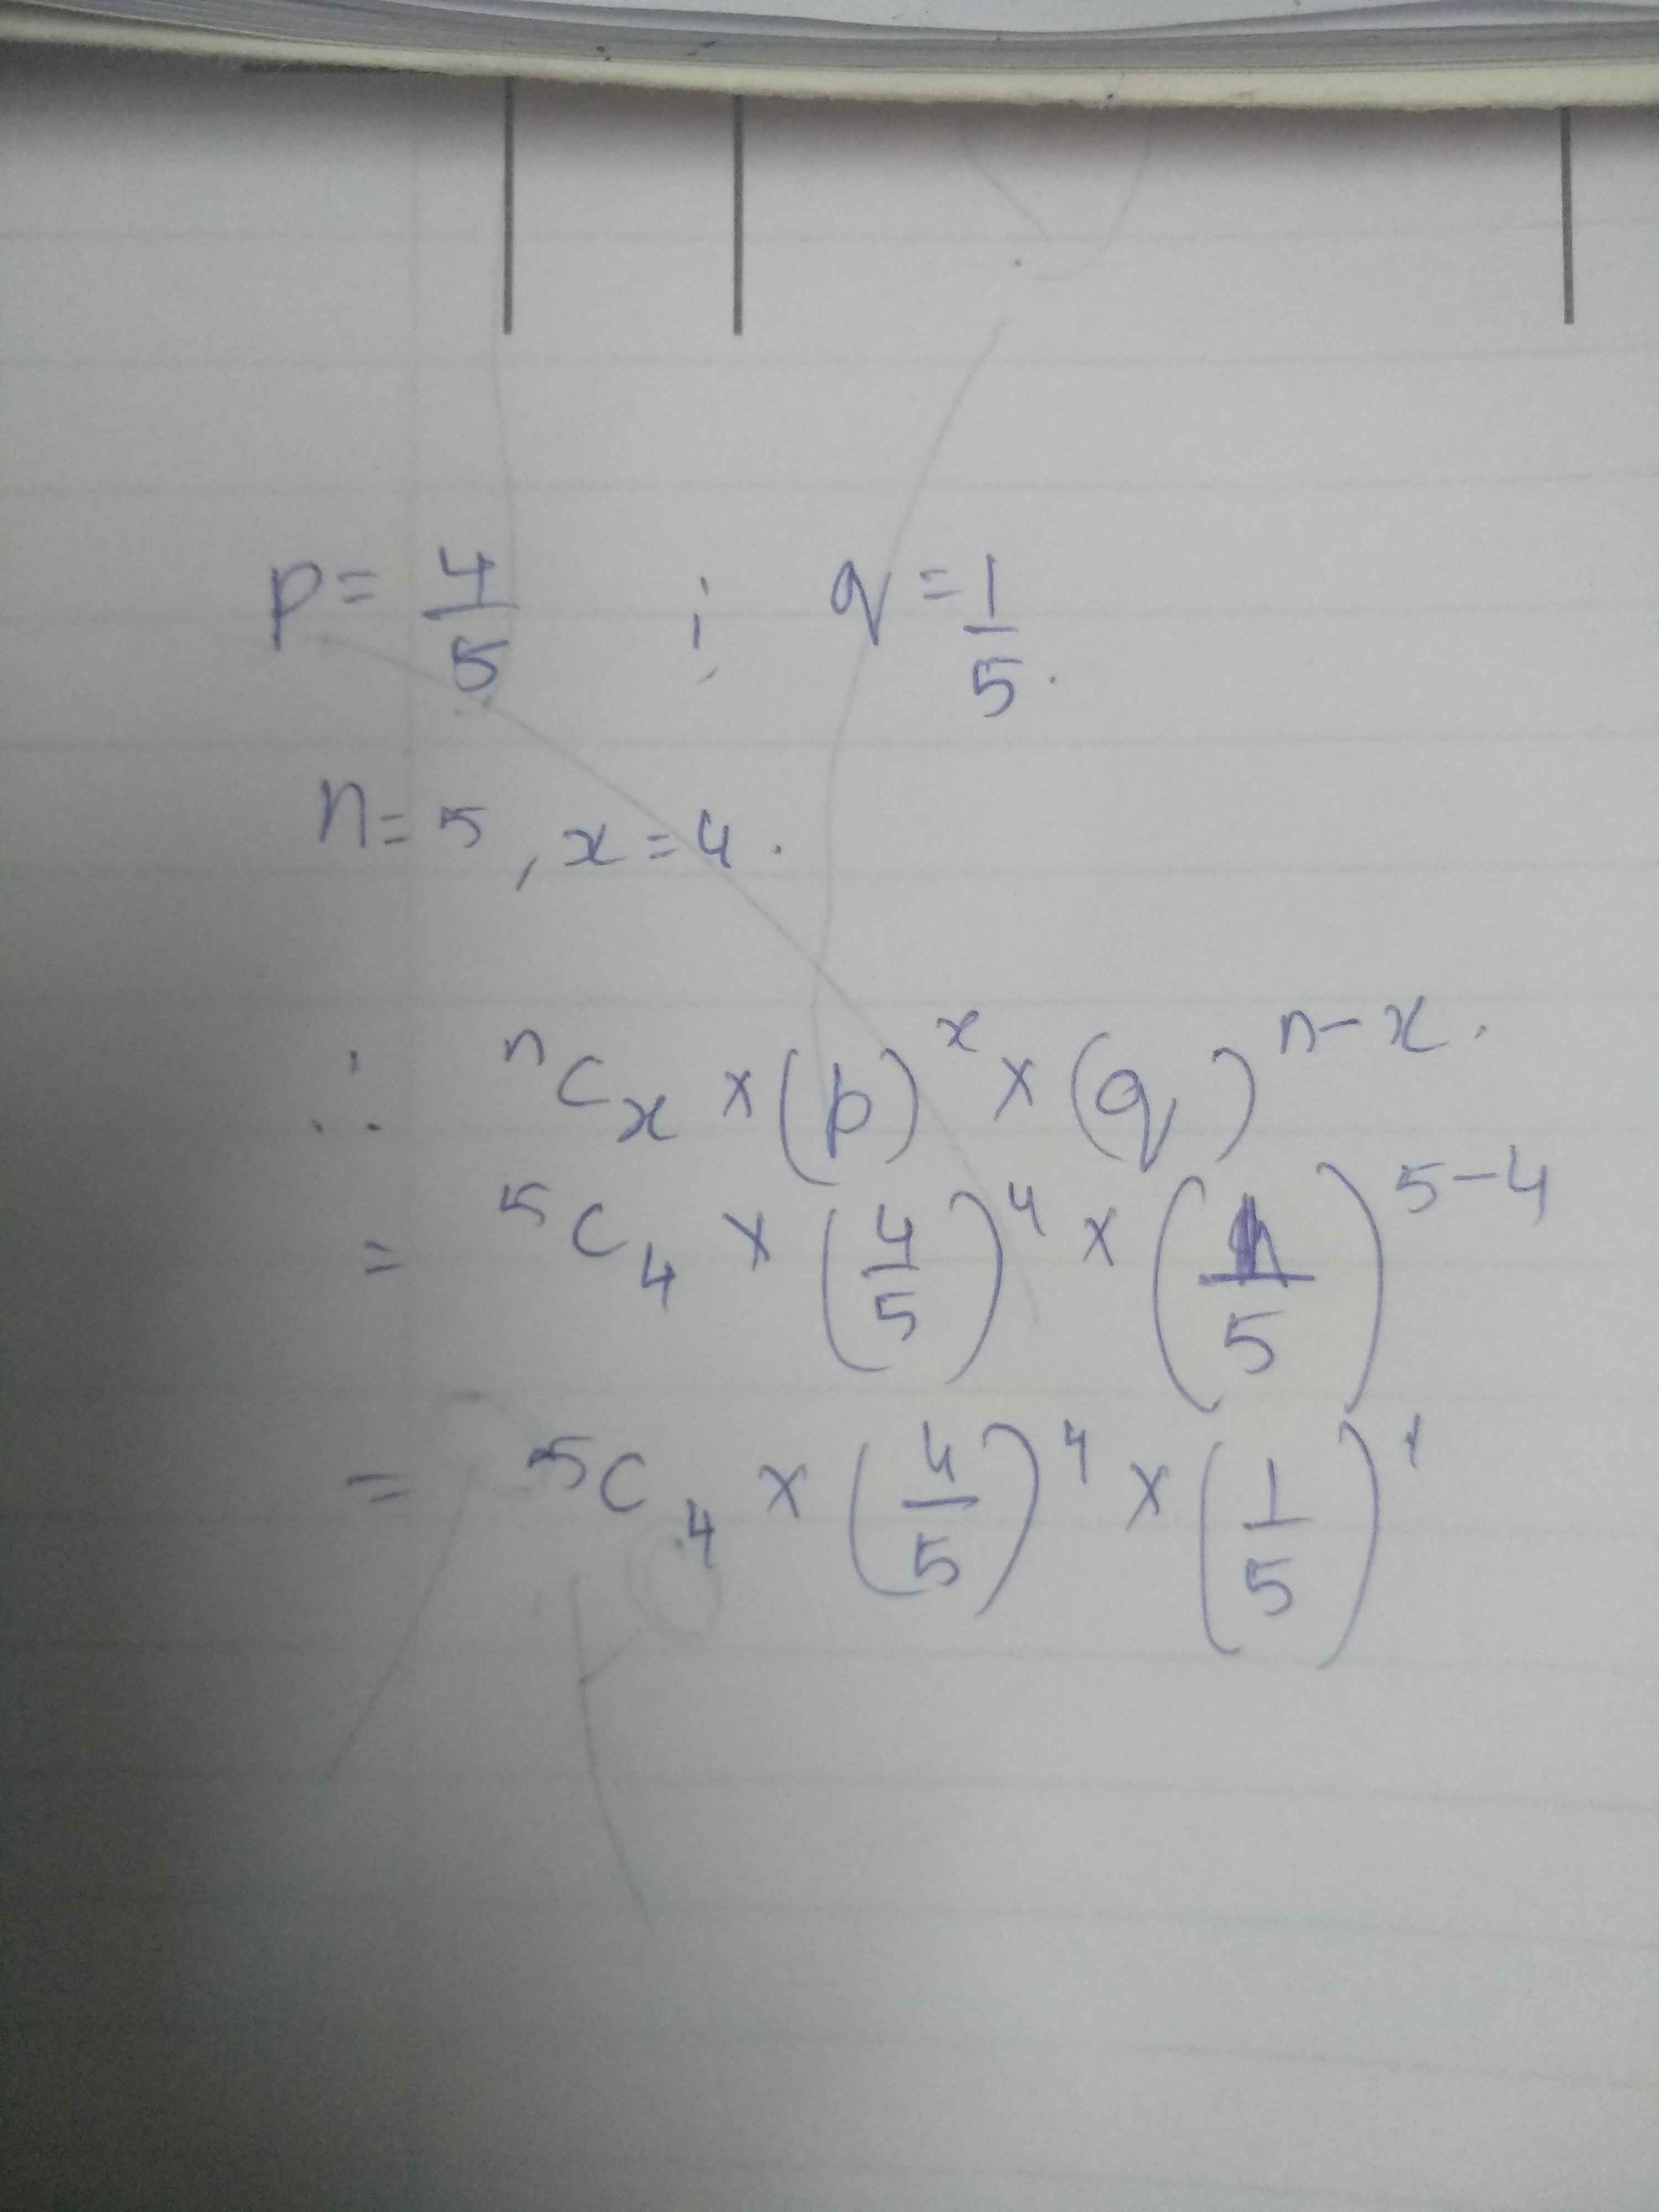 p = 4/5 ; q = 1/5.
n = 5, x = 4.
∴ ⁿCₓ × (p)ˣ × (q)ⁿ⁻ˣ.
= ⁵C₄ × (4/5)⁴ × (1/5)⁵⁻⁴
= ⁵C₄ × (4/5)⁴ × (1/5)¹